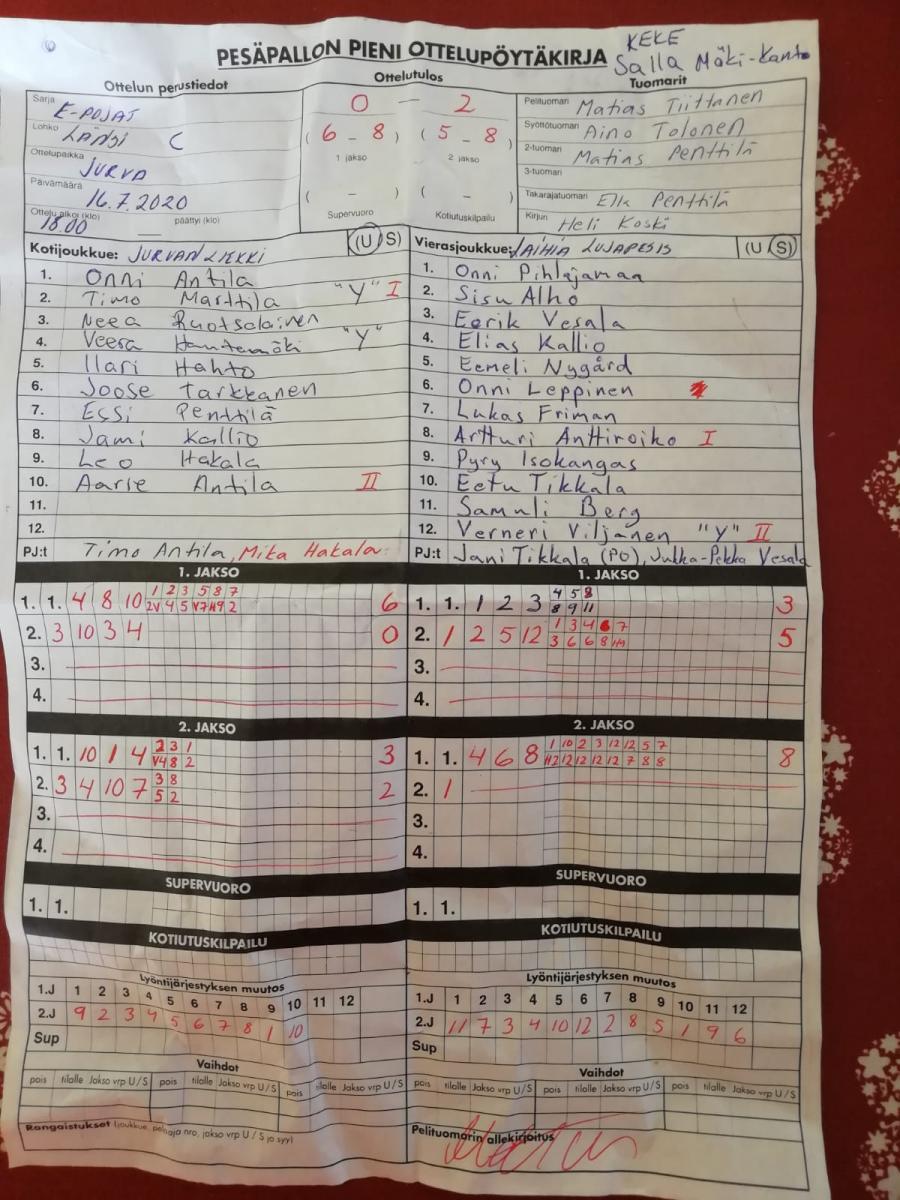 PESÄPALLON PIENI OTTELUPÖYTÄKIRJA
KEKE
Salla Mäki-Kanto
Ottelun perustiedot
Ottelutulos
Tuomarit
Sarja E-POJAT
Lohko LÄNSI C
Ottelupaikka JURVA
Päivämäärä 16.7.2020
Ottelu alkoi (klo) 18.00 päättyi (klo)
0 – 2
( 6 – 8 ) ( 5 – 8 )
1 jakso 2 jakso
( – ) ( – )
Supervuoro Kotiutuskilpailu
Pelituomari Matias Tiittanen
Syöttötuomari Aino Tolonen
2-tuomari Matias Penttilä
3-tuomari
Takarajatuomari Penttilä
Kirjuri Heli Koski
Kotijoukkue: JURVAN LIEKKI (U S)
1. Onni Antila
2. Timo Marttila "Y" I
3. Neea Ruotsalainen
4. Veera Hautamäki "Y"
5. Ilari Hahto
6. Joose Tarkkanen
7. Essi Penttilä
8. Jami Kallio
9. Leo Hakala
10. Aarre Antila II
11.
12.
PJ:t Timo Antila, Mika Hakala
Vierasjoukkue: LAIHIA LUJAPESIS (U S)
1. Onni Pihlajamaa
2. Sisu Alho
3. Eerik Vesala
4. Elias Kallio
5. Eemeli Nygård
6. Onni Leppinen
7. Lukas Friman
8. Artturi Anttiroiko I
9. Pyry Isokangas
10. Eetu Tikkala
11. Samuli Berg
12. Verneri Viljanen "Y" II
PJ:t Jani Tikkala (PO), Jukka-Pekka Vesala
1. JAKSO
1. 1. 4 8 10 1 2 3 5 8 7 6
2V 4 5 V7 9 2
2. 3 10 3 4 0
3.
4.
1. JAKSO
1. 1. 1 2 3 4 5 8 3
8 9 11
2. 1 2 5 12 1 3 4 6 7 5
3 6 6 8
3.
4.
2. JAKSO
1. 1. 10 1 4 2 3 1 3
V4 8 2
2. 3 4 10 7 3 8 2
5 2
3.
4.
2. JAKSO
1. 1. 4 6 8 1 10 2 3 12 12 5 7 8
12 12 12 12 7 8 8
2. 1
3.
4.
SUPERVUORO
1. 1.
SUPERVUORO
1. 1.
KOTIUTUSKILPAILU
KOTIUTUSKILPAILU
Lyöntijärjestyksen muutos
1.J 1 2 3 4 5 6 7 8 9 10 11 12
2.J 9 2 3 4 5 6 7 8 1 10
Sup
Lyöntijärjestyksen muutos
1.J 1 2 3 4 5 6 7 8 9 10 11 12
2.J 11 7 3 4 10 12 2 8 5 1 9 6
Sup
Vaihdot
pois tilalle Jakso vrp U/S pois tilalle Jakso vrp U/S pois tilalle Jakso vrp U/S
Vaihdot
pois tilalle Jakso vrp U/S pois tilalle Jakso vrp U/S pois tilalle Jakso vrp U/S
Rangaistukset (joukkue, pelaaja nro, jakso vrp U / S ja syy)
Pelituomarin allekirjoitus